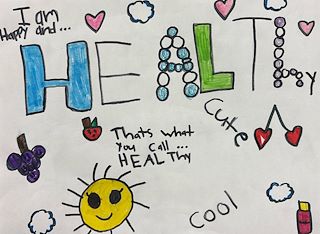 I am
Happy and...
HEALTHy
Cute
Thats what
you call...
HEALTHy
cool